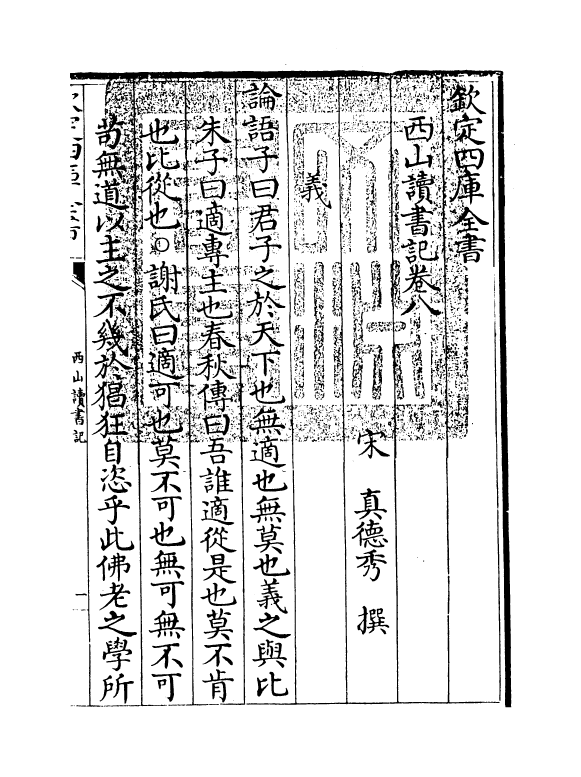 欽定四庫全書
西山讀書記卷八
宋 真德秀 撰
義
論語子曰君子之於天下也無適也無莫也義之與比
朱子曰適專主也春秋傳曰吾誰適從是也莫不肯
也比從也○謝氏曰適可也莫不可也無可無不可
苟無道以主之不幾於猖狂自恣乎此佛老之學所
西山讀書記
一